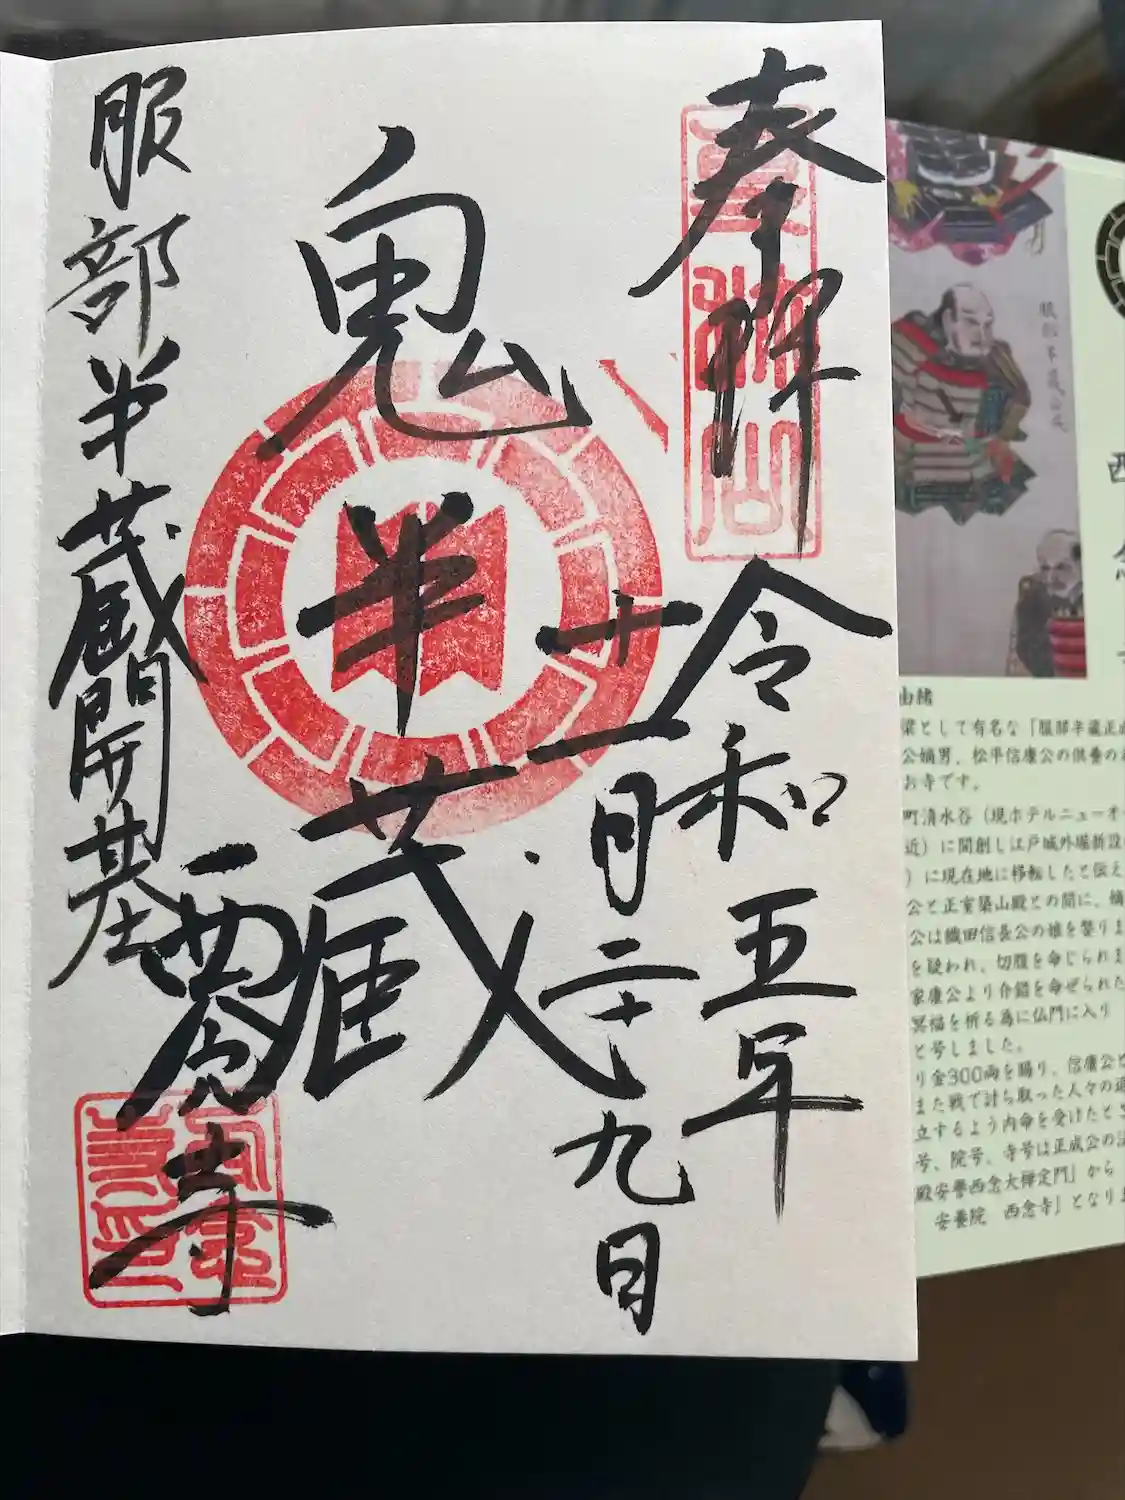 奉拝
令和五年
十一月二十九日
鬼半蔵
服部半蔵開基
西念寺
服部半蔵
西念寺
由緒
梁として有名な「服部半蔵正成
公嫡男、松平信康公の供養の
お寺です。
町清水谷（現ホテルニューオー
近）に開創し江戸城外堀新設
）に現在地に移転したと伝え
公と正室築山殿との間に、嫡
公は織田信長公の娘を娶りま
を疑われ、切腹を命じられま
家康公より介錯を命ぜられた
冥福を祈る為に仏門に入り
と号しました。
り金300両を賜り、信康公と
また戦で討ち取った人々の
立するよう内命を受けたとこ
号、院号、寺号は正成公の法
殿安誉西念大禅定門」から
安養院　西念寺」となりま